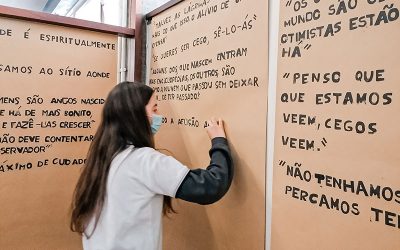 DE É ESPIRITUALMENTE
SAMOS AO SÍTIO AONDE
MENS SÃO ANJOS NASCID
É HÁ DE MAIS BONITO,
E FAZÊ-LAS CRESCER"
NÃO DEVE CONTENTAR
SERVADOR"
ÁXIMO DE CUIDAD
TALVEZ AS LÁGRIM
QUE ISSO O ALÍVIO DE U
"SE QUERES SER CEGO, SÊ-LO-ÁS"
"ALGUNS DOS QUE NASCEM ENTRAM
OS OUTROS SÃO
QUE PASSOU SEM DEIXAR
TER PASSADO!"
DO A AFLIÇÃO A
"OS
MUNDO SÃO OS
CTIMISTAS ESTÃO
HÁ"
"PENSO QUE
QUE ESTAMOS
VEEM, CEGOS
VEEM."
"NÃO TENHAMOS
PERCAMOS TE